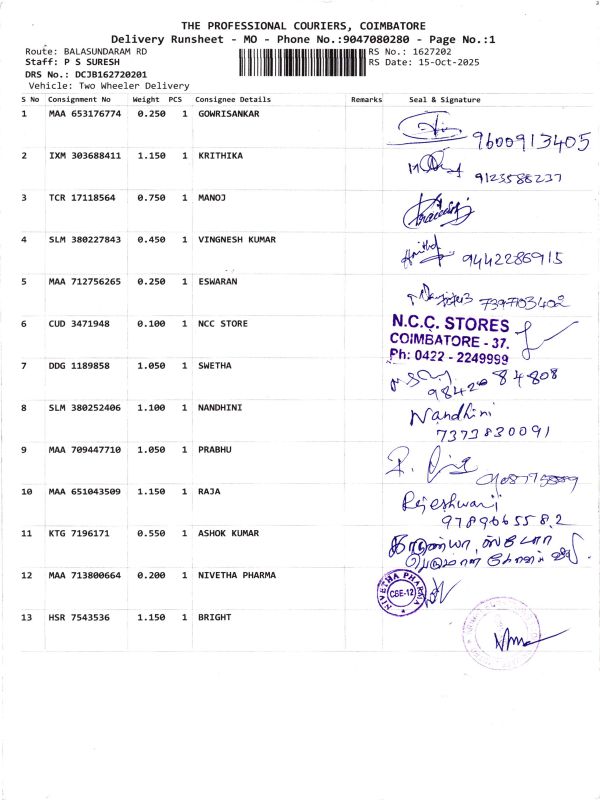 THE PROFESSIONAL COURIERS, COIMBATORE
Delivery Runsheet - MO - Phone No.:9047080280 - Page No.:1
Route: BALASUNDARAM RD RS No.: 1627202
Staff: P S SURESH RS Date: 15-Oct-2025
DRS No.: DCJB162720201
Vehicle: Two Wheeler Delivery
S No Consignment No Weight PCS Consignee Details Remarks Seal & Signature
1 MAA 653176774 0.250 1 GOWRISANKAR
9600913405
2 IXM 303688411 1.150 1 KRITHIKA
9123588237
3 TCR 17118564 0.750 1 MANOJ
4 SLM 380227843 0.450 1 VINGNESH KUMAR
9442286915
5 MAA 712756265 0.250 1 ESWARAN
7397103402
6 CUD 3471948 0.100 1 NCC STORE
N.C.C. STORES
COIMBATORE - 37.
Ph: 0422 - 2249999
7 DDG 1189858 1.050 1 SWETHA
98420 84808
8 SLM 380252406 1.100 1 NANDHINI
Nandhini
7373830091
9 MAA 709447710 1.050 1 PRABHU
10 MAA 651043509 1.150 1 RAJA
Rajeshwari
9789665582
11 KTG 7196171 0.550 1 ASHOK KUMAR
12 MAA 713800664 0.200 1 NIVETHA PHARMA
NIVETHA PHARMA
CBE-12
13 HSR 7543536 1.150 1 BRIGHT